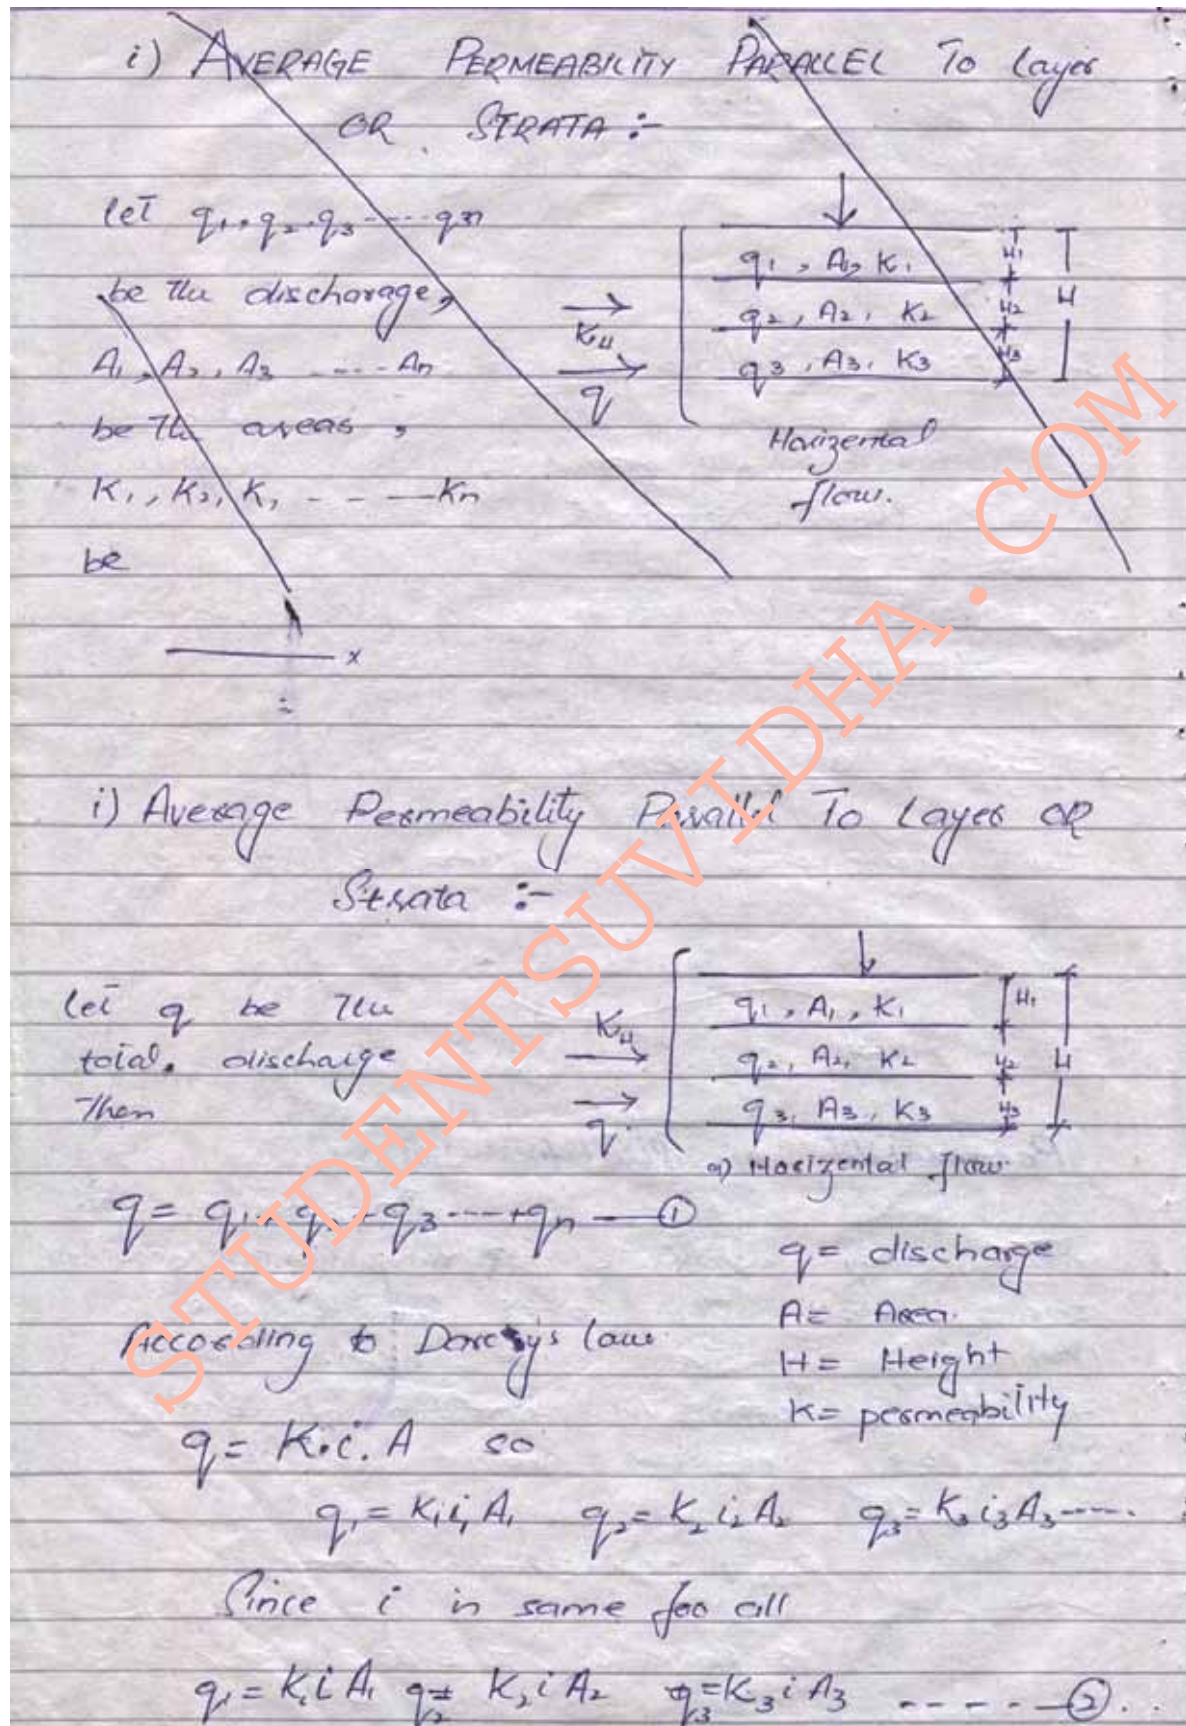 i) AVERAGE PERMEABILITY PARALLEL To Layer
OR STRATA :-
let q1, q2, q3 ---- q3n
be the discharage,
A1, A2, A3 ---- An
be the areas,
K1, K2, K, - - - Kn
be
KH
q
q1, A1, K1
q2, A2, K2
q3, A3, K3
H1
H2
H3
H
Horizental
flow.
x
i) Average Permeability Parallel To Layer OR
Strata :-
let q be the
total. discharge
Then
KH
q
q1, A1, K1
q2, A2, K2
q3, A3, K3
H1
H2
H3
H
a) Horizental flow.
q = q1 + q2 + q3 ---- + qn — ①
q = discharge
A = Area.
H = Height
K = permeability
According to Darcy's law
q = K.i.A so
q1 = K1 i1 A1 q2 = K2 i2 A2 q3 = K3 i3 A3 ----.
Since i is same for all
q1 = K1 i A1 q2 = K2 i A2 q3 = K3 i A3 ----- ②..
STUDENTSUVIDHA.COM